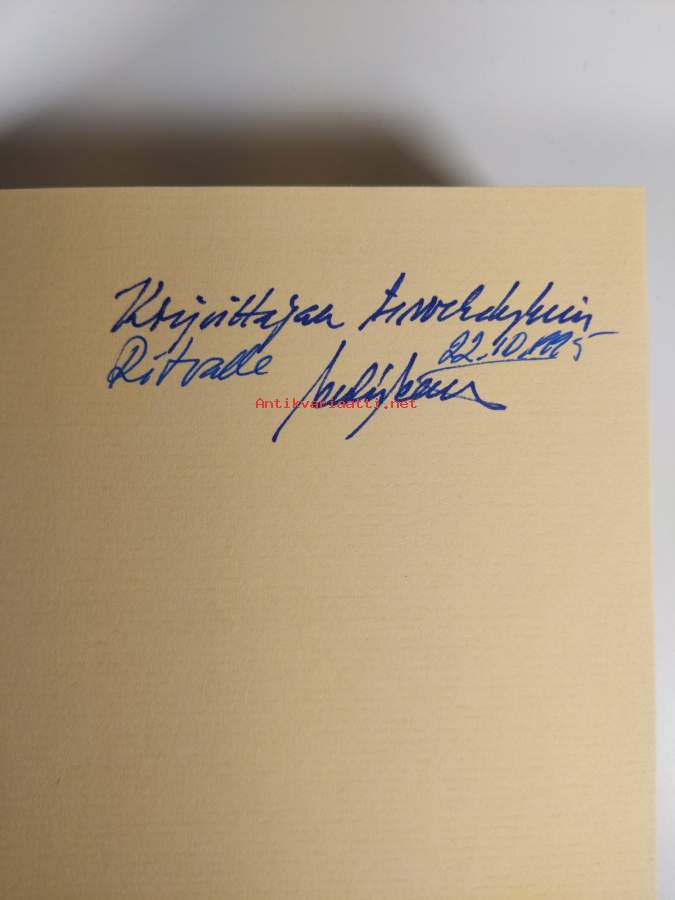 Kirjoittajan tervehdyksin
Ritvalle 22.10.1995
Antikvariaatti.net